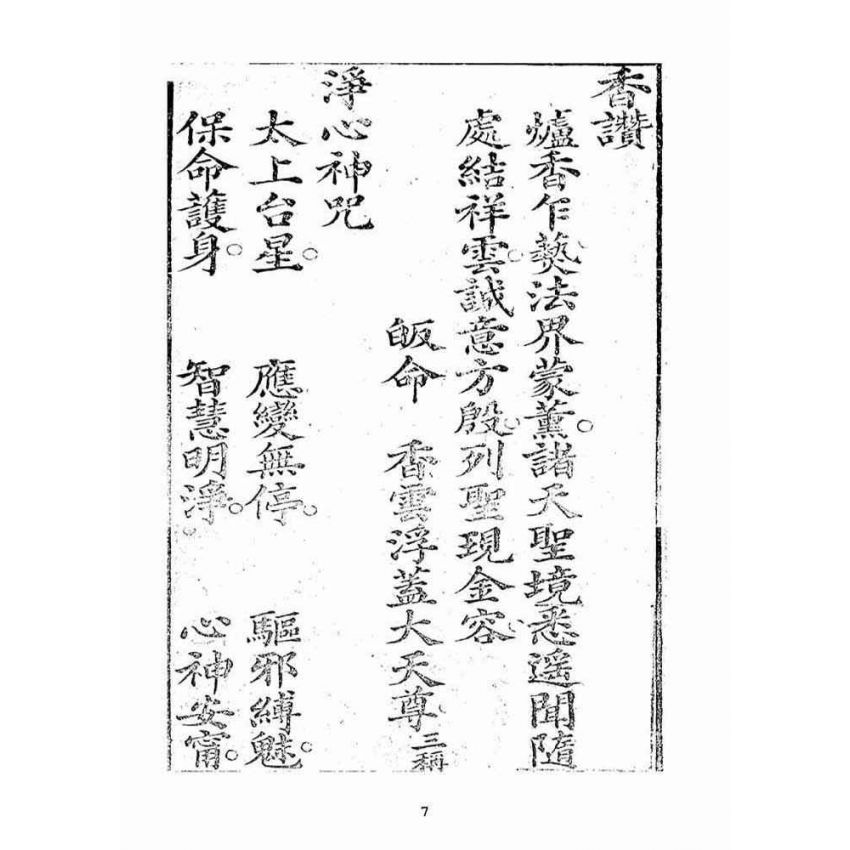 香讚
爐香乍爇法界蒙薰。諸天聖境悉遥聞隨
處結祥雲。誠意方殷。列聖現金容。
皈命　香雲浮蓋大天尊三稱
淨心神咒
太上台星。　應變無停。　驅邪縛魅。
保命護身。　智慧明淨。　心神安甯。
7